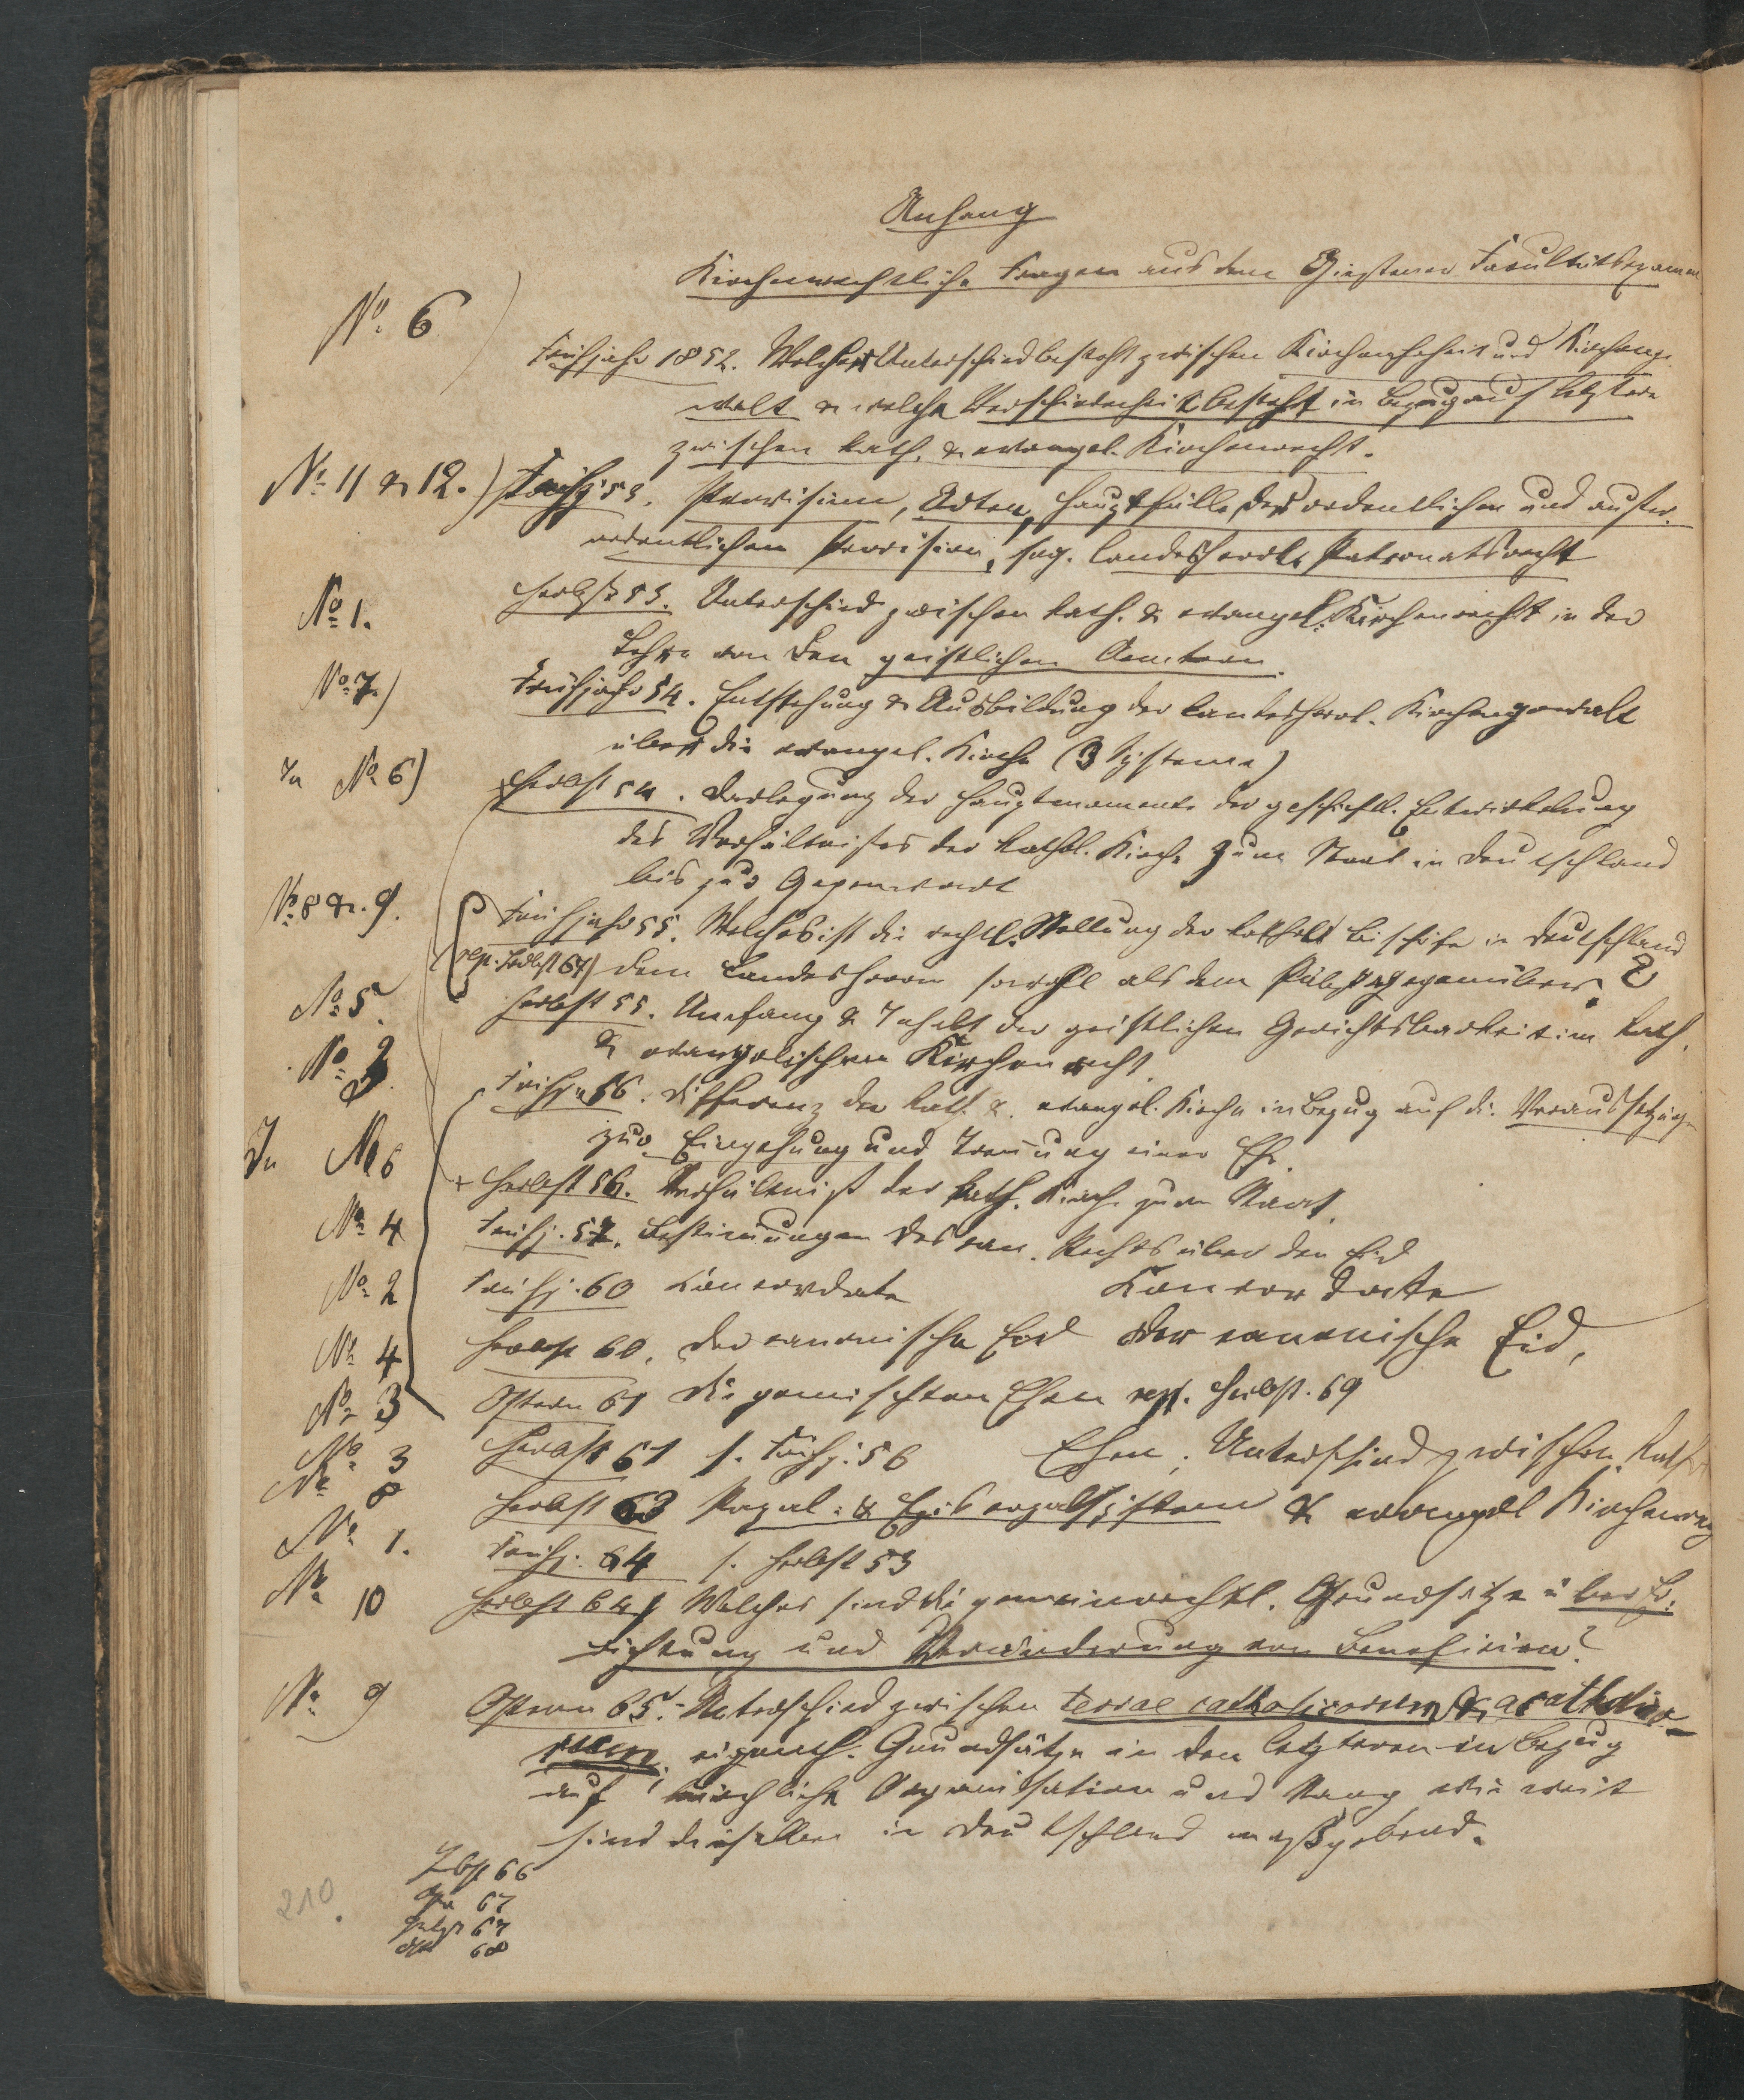 Anhang
Kirchenrechtliche Fragen aus dem Giessener Facultätsexamen
No. 6
Frühjahr 1852. Welcher Unterschied besteht zwischen Kirchenhoheit und Kirchenge-
walt & welche Verschiedenheit besteht in Bezug auf letztere
zwischen kath. & evangel. Kirchenrecht.
No 11 & 12.) Frühj. 53. Provision, Arten, Hauptfälle der ordentlichen und außer-
ordentlichen Provision, sog. landesherrl. Patronatsrecht
No 1. Herbst 53. Unterschied zwischen kath. & evangel. Kirchenrecht in der
Lehre von den geistlichen Aemtern.
No. 7.) Frühjahr 54. Entstehung & Ausbildung der landesherrl. Kirchengewalt
über die evangel. Kirche (3 Systeme)
Zu No 6) Herbst 54. Darlegung der Hauptmomente der geschichtl. Entwickelung
des Verhältnißes der kathol. Kirche zum Staat in Deutschland
bis zur Gegenwart
No. 8 & 9. Frühjahr 55. Welches ist die rechtl. Stellung der kathol. Bischöfe in Deutschland
rep. Herbst 67) dem Landesherrn sowohl als dem Pabst gegenüber?
No 5. Herbst 55. Umfang & Inhalt der geistlichen Gerichtsbarkeit im kath.
& evangelischen Kirchenrecht.
No 3. Frühj. 56. Differenz der kath. & evangel. Kirche in Bezug auf die Voraussetzungen
zur Eingehung und Trennung einer Ehe.
Zu No 6 + Herbst 56. Verhältniß der kath. Kirche zum Staat.
No 4 Frühj. 57. Bestimmungen des can. Rechts über den Eid
No 2 Frühj. 60 Concordate Concordate
No 4 Herbst 60. Der canonische Eid Der canonische Eid,
No 3 Ostern 61 Die gemischten Ehen rep. Herbst. 69
No 3 Herbst 61 s. Frühj. 56 Ehen. Unterschied zwischen Kath
No 8 Herbst 63 Papal- & Episcopalsystem & evangel Kirchenrecht
No 1. Frühj. 64 s. Herbst 53
No 10 Herbst 64 Welches sind die gemeinrechtl. Grundsätze über Er-
richtung und Veränderung von Beneficien?
No 9 Ostern 65. Unterschied zwischen terrae catholicorum & acatholico-
rum, eigenth. Grundsätze in den letzteren in Bezug
auf kirchliche Organisation und wie weit
sind dieselben in Deutschland maßgebend.
Hbst 66
67
Herbst 67
Ost 68
210.